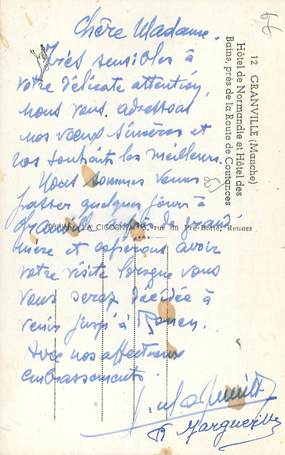 Chère Madame.
Très sensibles à
votre délicate attention,
nous vous adressons
nos vœux sincères et
nos souhaits les meilleurs.
Nous sommes venus
passer quelques jours à
Granville près de grand'
mère et espérons avoir
votre visite lorsque vous
vous serez décidée à
venir jusqu'à
Avec nos affectueux
embrassements.
Marguerite
12 GRANVILLE (Manche)
Hôtel de Normandie et Hôtel des
Bains, près de la Route de Coutances
rue du Pré-Botté, Rennes